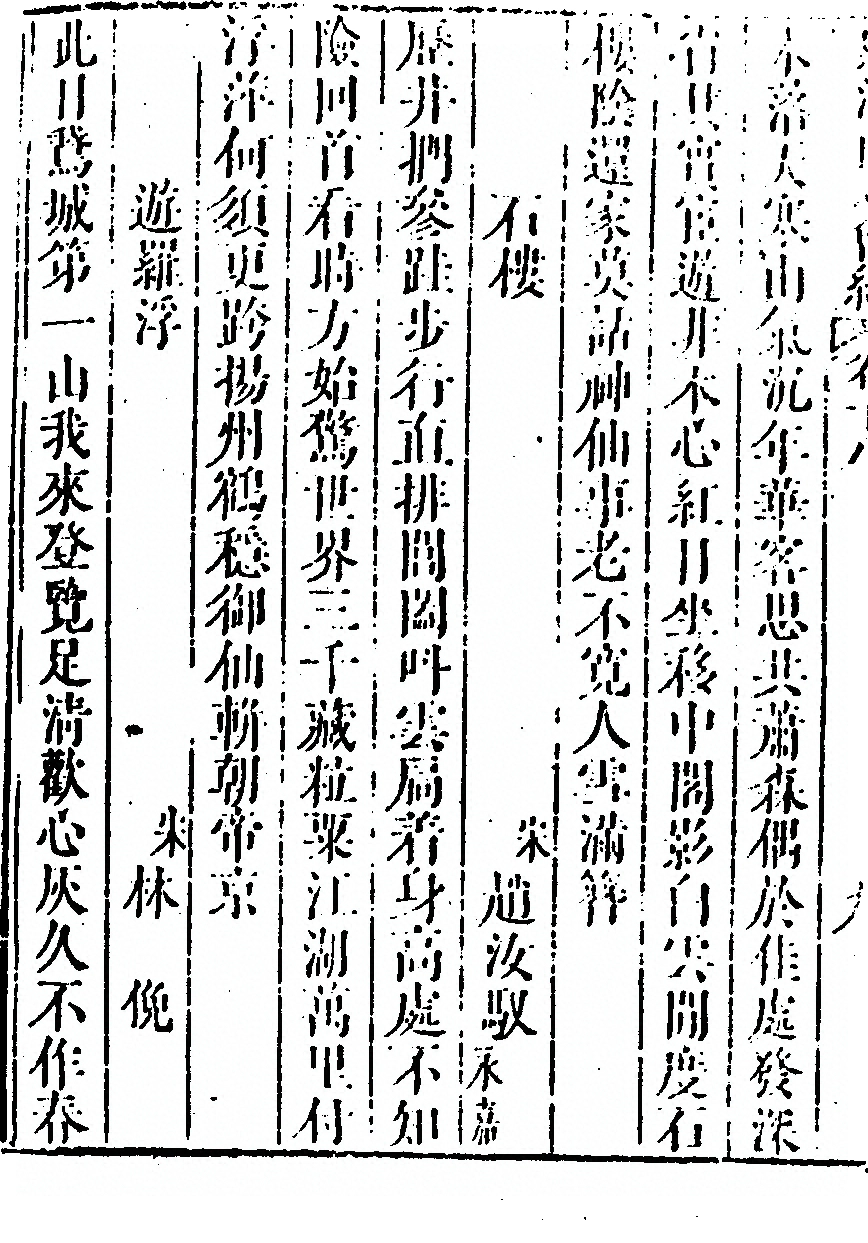 木落天寒山氣沉年華客思共蕭森偶於佳處發深
省其實宦遊非本心紅日坐移中閣影白雲閒度石
樓陰還家莫話神仙事老不寬人雪滿簪
石樓 宋趙汝馭永嘉
歷井捫參跬步行直排閶闔叫雲扃著身高處不知
險回首看時方始驚世界三千藏粒粟江湖萬里付
浮萍何須更跨揚州鶴穩御仙斬朝帝京
遊羅浮 宋林俛
此日鵞城第一山我來登覽足淸歡心灰久不作春